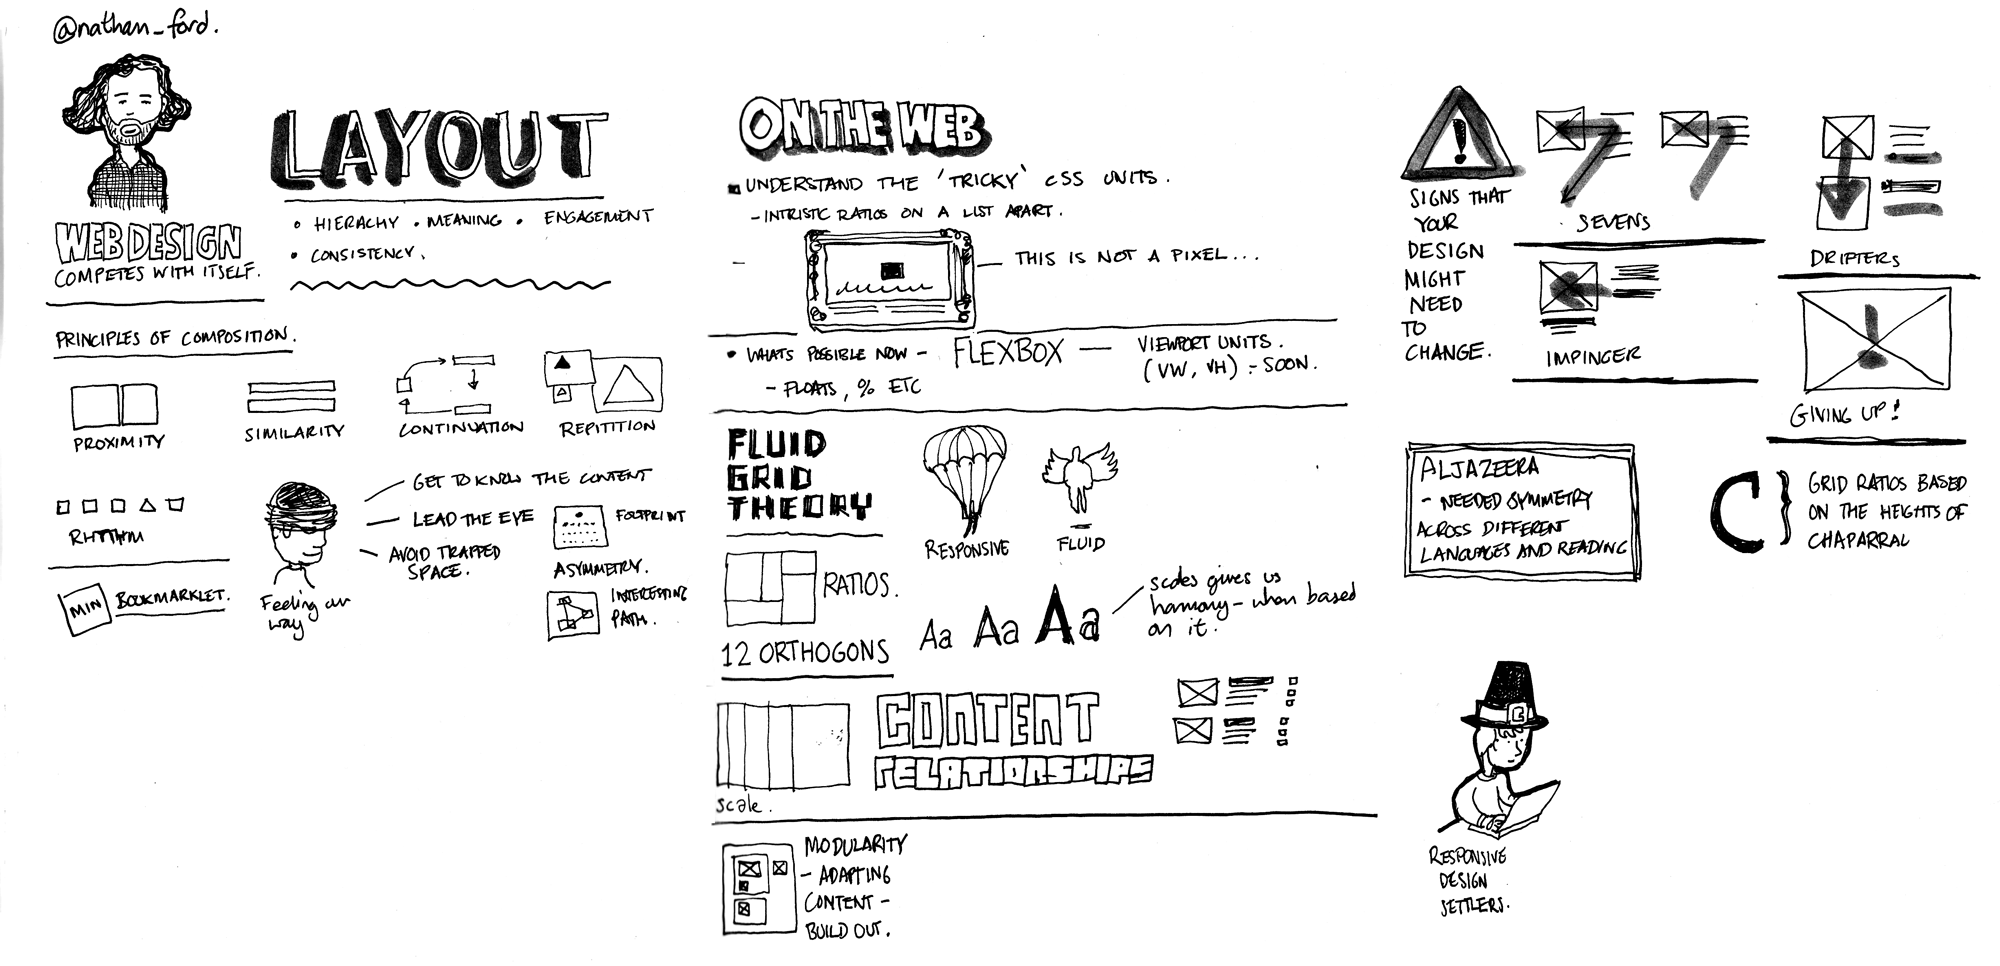 @nathan_ford.
WEB DESIGN
COMPETES WITH ITSELF.
LAYOUT
• HIERACHY • MEANING • ENGAGEMENT
• CONSISTENCY.
PRINCIPLES OF COMPOSITION.
PROXIMITY
SIMILARITY
CONTINUATION
REPITITION
RHYTHM
MIN
BOOKMARKLET.
Feeling our
way
GET TO KNOW THE CONTENT
LEAD THE EYE
AVOID TRAPPED
SPACE.
FOOTPRINT
ASYMMETRY.
INTERESTING
PATH.
ON THE WEB
UNDERSTAND THE 'TRICKY' CSS UNITS.
- INTRISTIC RATIOS ON A LIST APART.
THIS IS NOT A PIXEL...
• WHATS POSSIBLE NOW -
- FLOATS, % ETC
FLEXBOX —
VIEWPORT UNITS.
(VW, VH) :- SOON.
FLUID
GRID
THEORY
RESPONSIVE
FLUID
RATIOS.
12 ORTHOGONS
Aa Aa Aa
scales gives us
harmony - when based
on it.
scale.
CONTENT
RELATIONSHIPS
MODULARITY
- ADAPTING
CONTENT -
BUILD OUT.
!
SIGNS THAT
YOUR
DESIGN
MIGHT
NEED
TO
CHANGE.
SEVENS
IMPINGER
DRIFTERS
!
GIVING UP!
ALJAZEERA
- NEEDED SYMMETRY
ACROSS DIFFERENT
LANGUAGES AND READING
C }
GRID RATIOS BASED
ON THE HEIGHTS OF
CHAPARRAL
RESPONSIVE
DESIGN
SETTLERS.